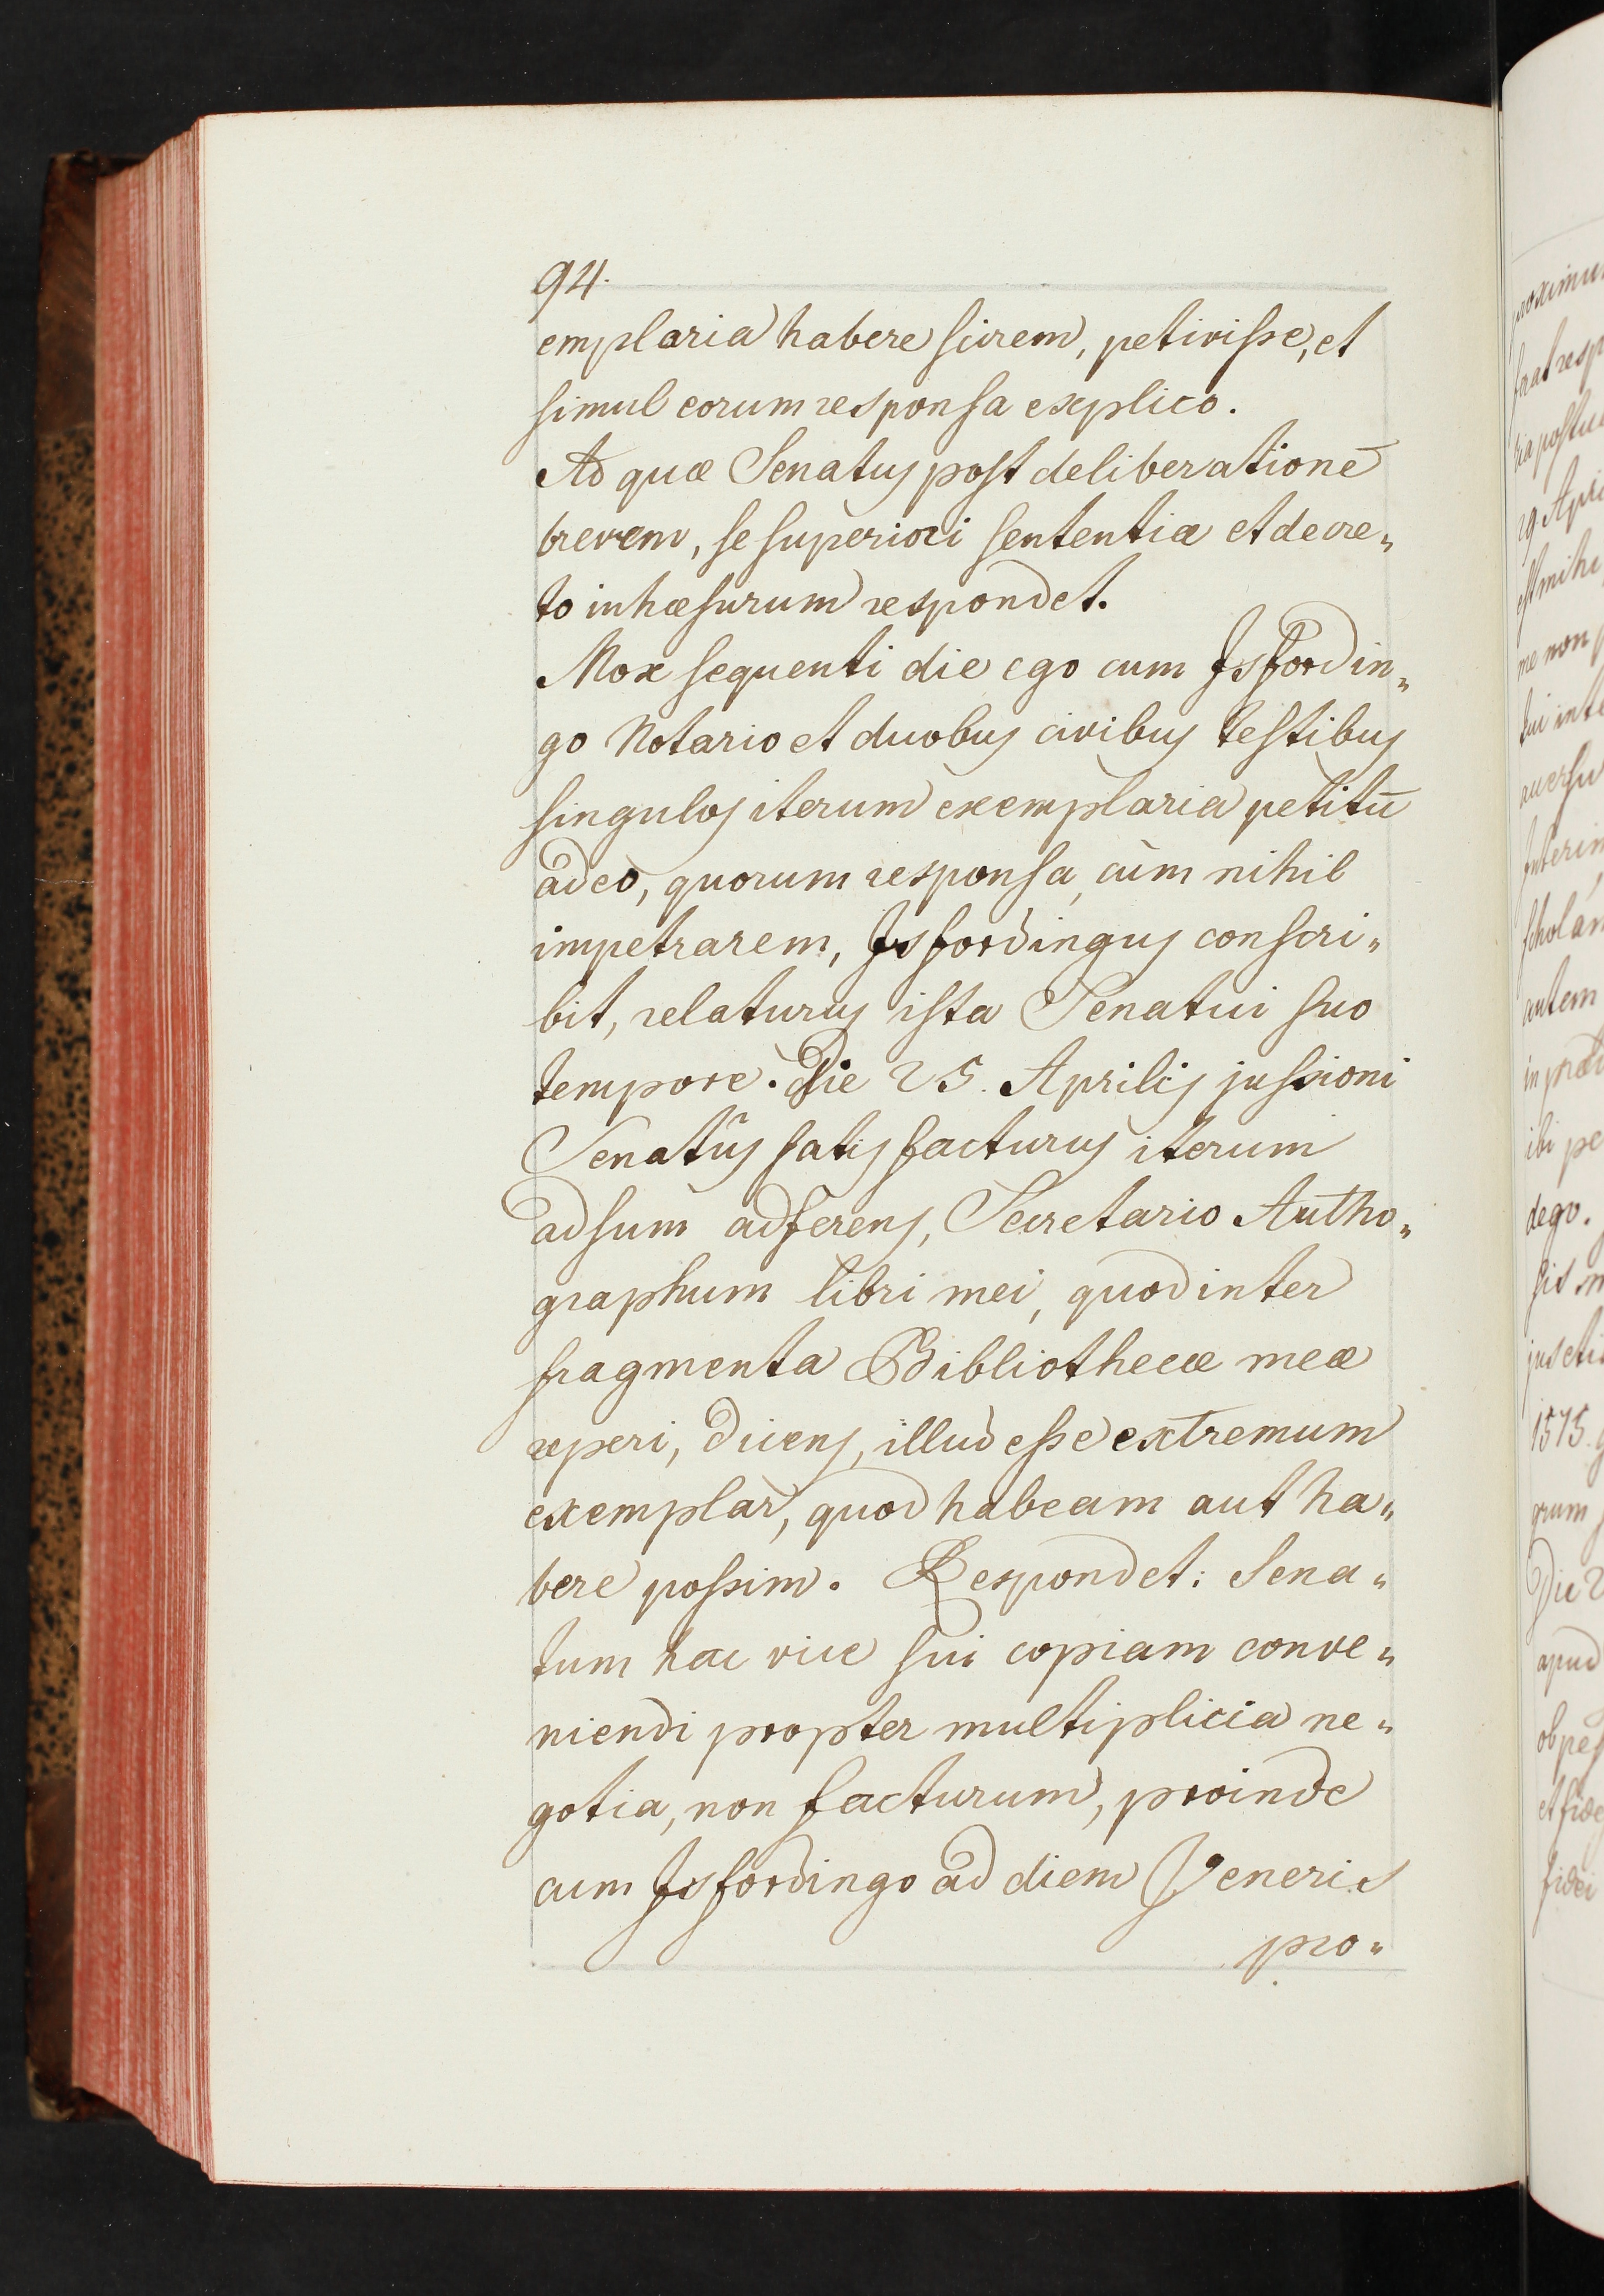 94.
emplaria habere scirem, petivisse, et
simul eorum responsa explico.
Ad quæ Senatus post deliberationē
brevem, se superiori sententiæ et decre„
to inhæsurum respondet.
Mox sequenti die ego cum Isfordin„
go Notario et duobus civibus testibus
singulos iterum exemplaria petitū
adeo, quorum responsa, cùm nihil
impetrarem, Isfordingus conscri„
bit, relaturus ista Senatui suo
tempore. Die 25. Aprilis jussioni
Senatûs satisfacturus iterum
adsum adferens, Secretario Autho„
graphum libri mei, quod inter
fragmenta Bibliothecæ meæ
reperi, dicens, illud esse extremum
exemplar, quod habeam aut ha„
bere possim. Respondet: Sena„
tum hac vice sui copiam conve„
niendi propter multiplicia ne„
gotia, non facturum, proinde
cum Isfordingo ad diem Veneris
pro„
29. Apri
est mihi
me non
autem
ibi pe
dego.
1575.
Die 2
apud
fidei